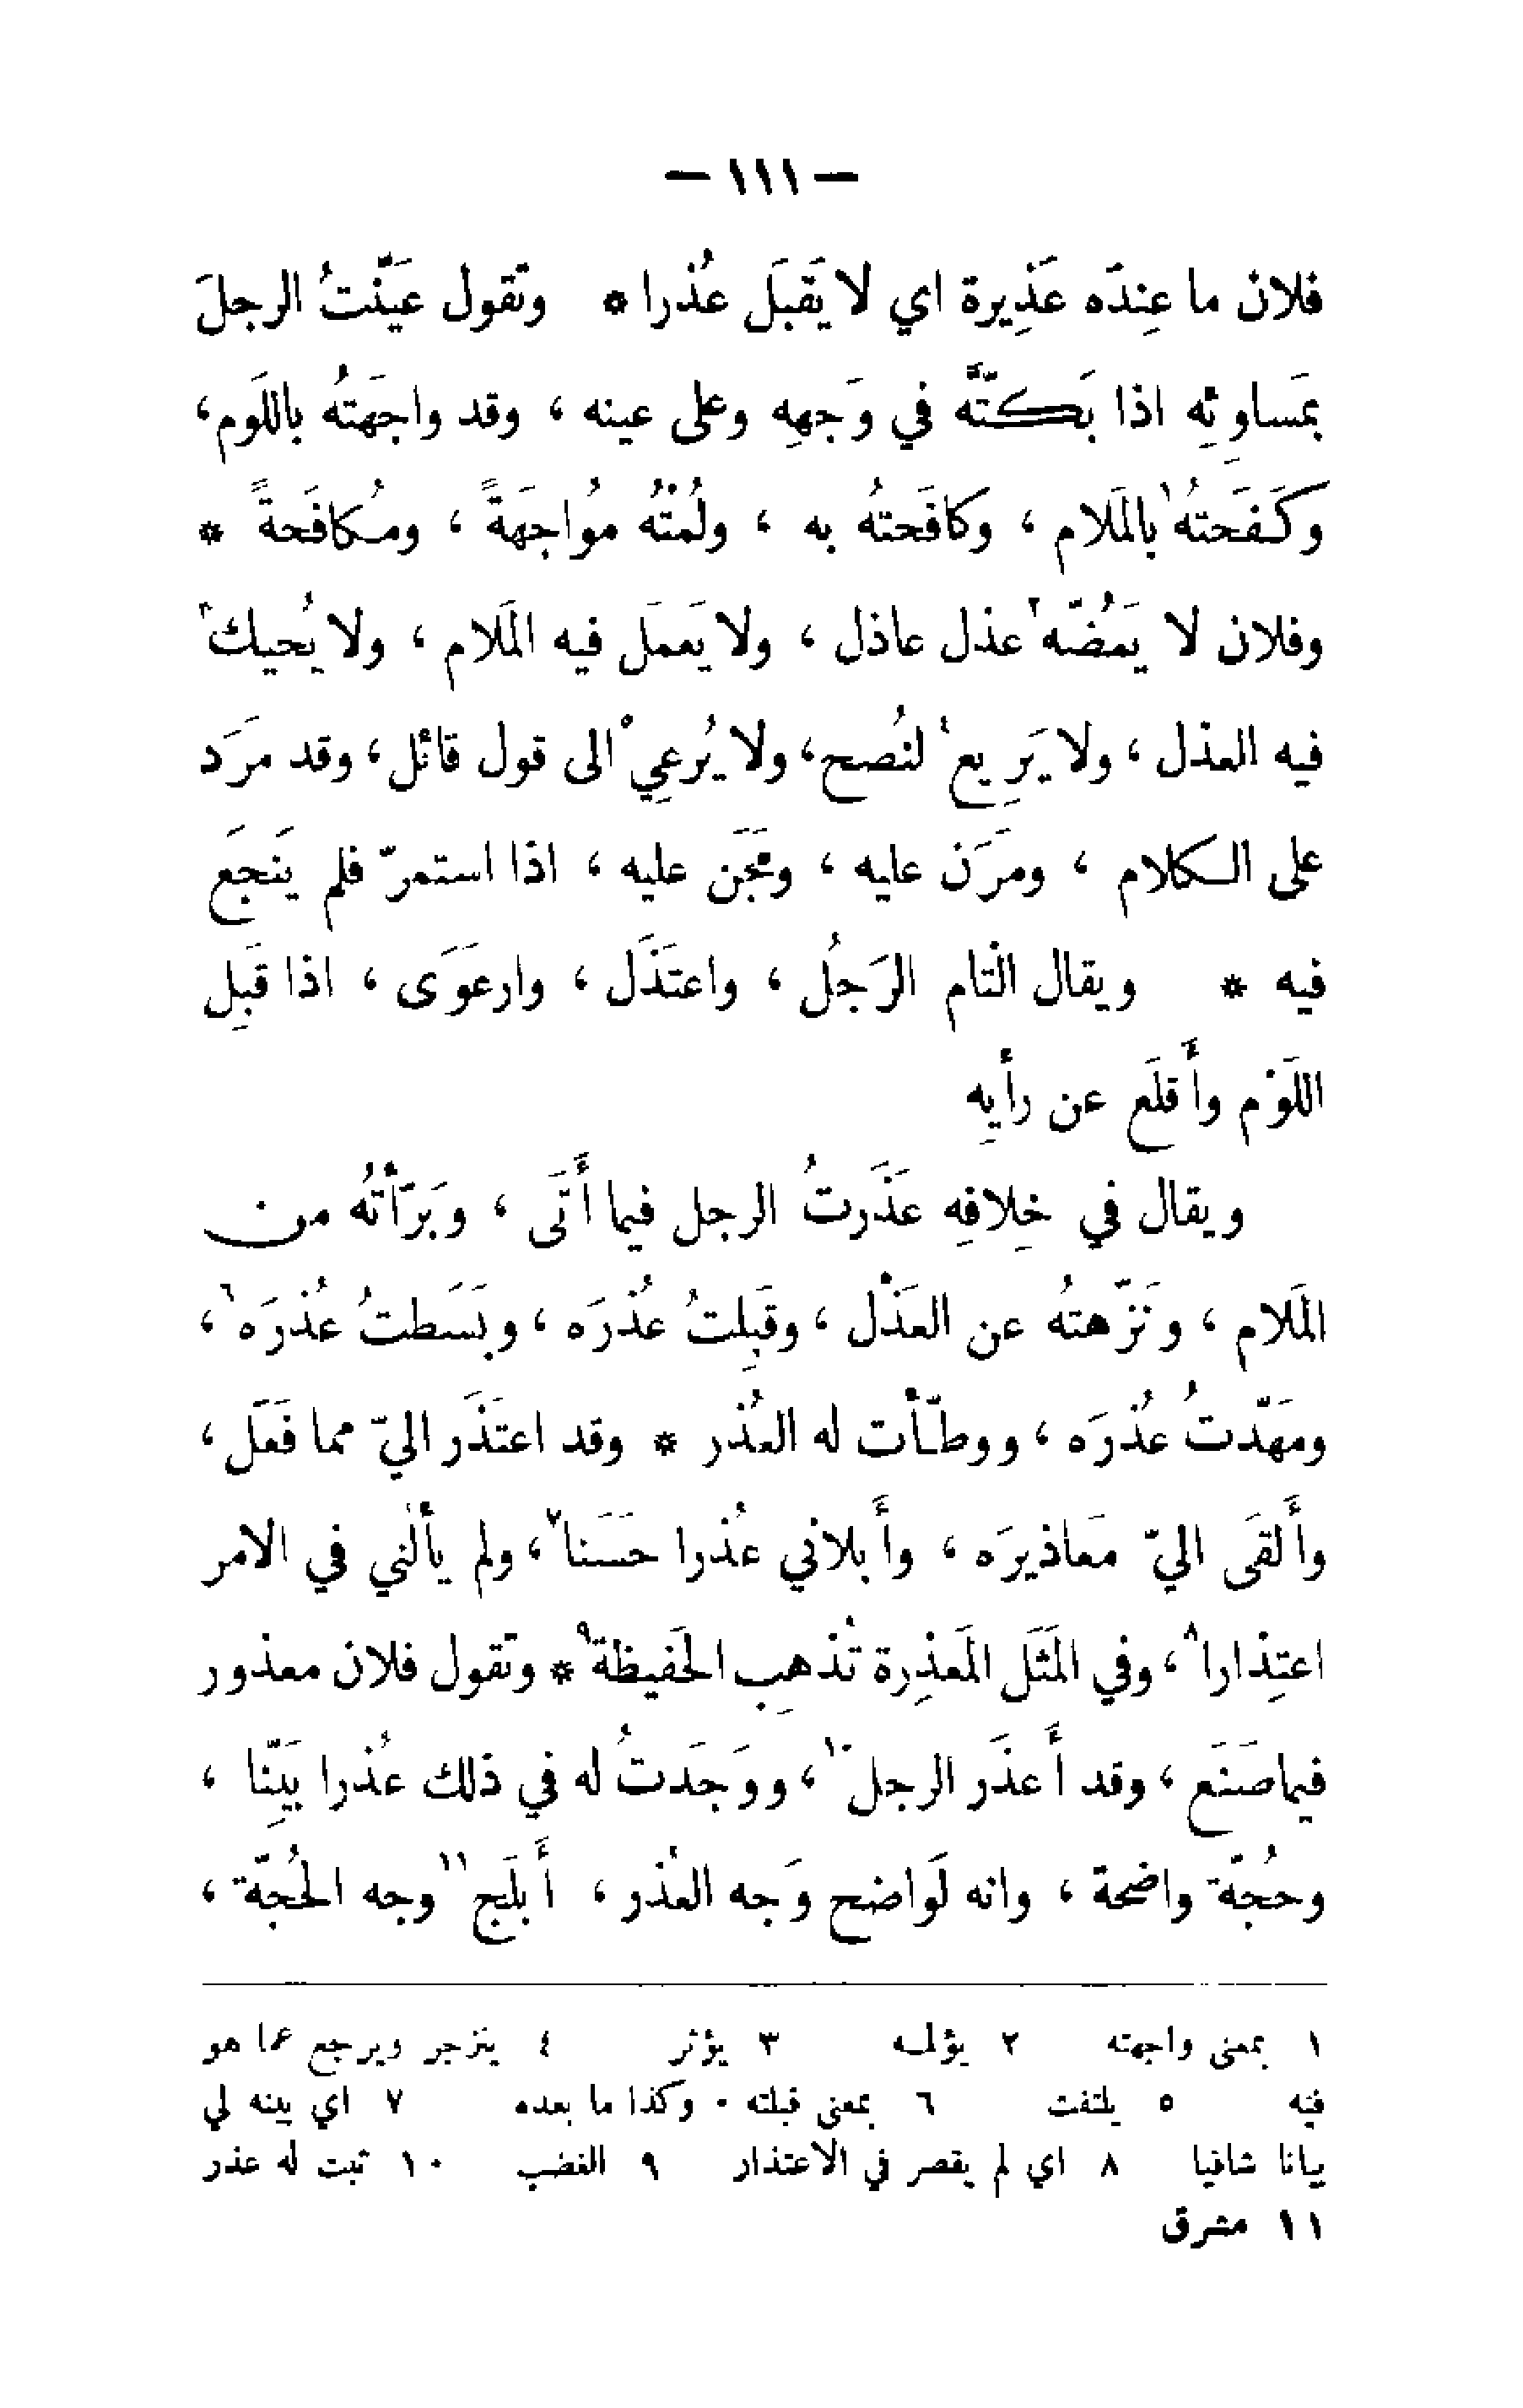 — ١١١ —
فلان ما عِندَه عَذِيرة اي لا يَقبَل عُذرا * وتقول عَيَّنْتُ الرجلَ
بمَساوِئِه اذا بَكَّتَّه في وَجهِه وعلى عينه ، وقد واجَهتُه باللَوم ،
وكَفَحتُه١ بالمَلام ، وكافَحتُه به ، ولُمْتُه مُواجَهةً ، ومُكافَحةً *
وفلان لا يَمُضّه٢ عذل عاذل ، ولا يَعمَل فيه المَلام ، ولا يُحيك٣
فيه العذل ، ولا يَرِيع٤ لنُصح ، ولا يُرعِي٥ الى قول قائل ، وقد مَرَد
على الكلام ، ومَرَن عليه ، ومَجَن عليه ، اذا استمرّ فلم يَنجَع
فيه * ويقال الْتام الرَجُل ، واعتَذَل ، وارعَوَى ، اذا قَبِل
اللَوْم وأَقلَع عن رأيِه
ويقال في خِلافِه عَذَرتُ الرجل فيما أَتَى ، وبَرّأتُه من
المَلام ، ونَزّهتُه عن العَذْل ، وقَبِلتُ عُذرَه ، وبَسَطتُ عُذرَه٦ ،
ومَهّدتُ عُذرَه ، ووطّأت له العُذر * وقد اعتَذَر اليّ مما فَعَل ،
وأَلقَى اليّ مَعاذيرَه ، وأَبلاني عُذرا حَسَنا٧ ، ولم يألُني في الامر
اعتِذارا٨ ، وفي المَثَل المَعذِرة تُذهِب الحَفيظة٩ * وتقول فلان معذور
فيما صَنَع ، وقد أَعذَر الرجل١٠ ، ووَجَدتُ له في ذلك عُذرا بَيِّنا ،
وحُجّة واضحة ، وانه لَواضح وَجه العُذر ، أَبلَج١١ وجه الحُجّة ،
١ بمعنى واجهته ٢ يؤلمه ٣ يؤثر ٤ ينزجر ويرجع عما هو
فيه ٥ يلتفت ٦ بمعنى قبلته . وكذا ما بعده ٧ اي بينه لي
بيانا شافيا ٨ اي لم يقصر في الاعتذار ٩ الغضب ١٠ ثبت له عذر
١١ مشرق